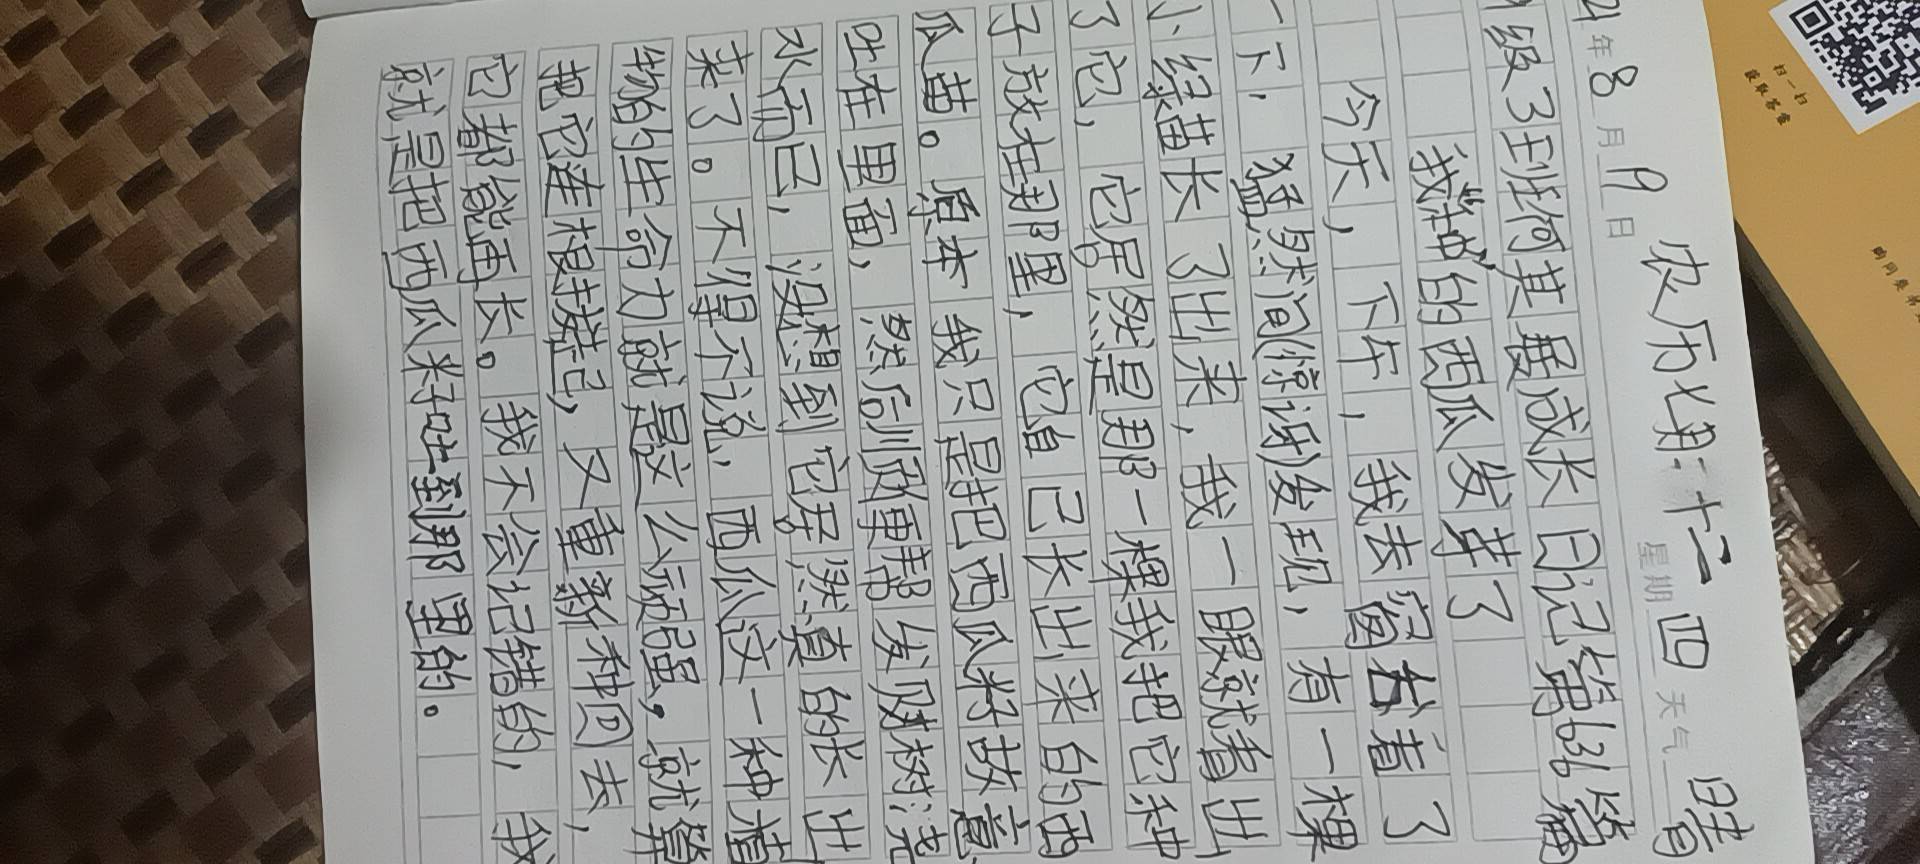 农历七月:十二
年8月19日 星期四 天气晴
级了班何其展成长日记第636篇
我种的西瓜发芽了
今天,下午,我去窗台看了
一下,猛然间惊讶发现,有一棵
小绿苗长了出来,我一眼就看出
了它,它居然是那一棵我把它种
子放在那里,它自己长出来的西
瓜苗。原本我只是把西瓜籽故意
吐在里面,然后顺便帮发财树浇
水而已,没想到它居然真的长出
来了。不得不说,西瓜这一种植
物的生命力就是这么顽强,就算
把它连根拔起,又重新种回去,
它都能再长。我不会记错的,我
就是把西瓜籽吐到那里的。
扫一扫